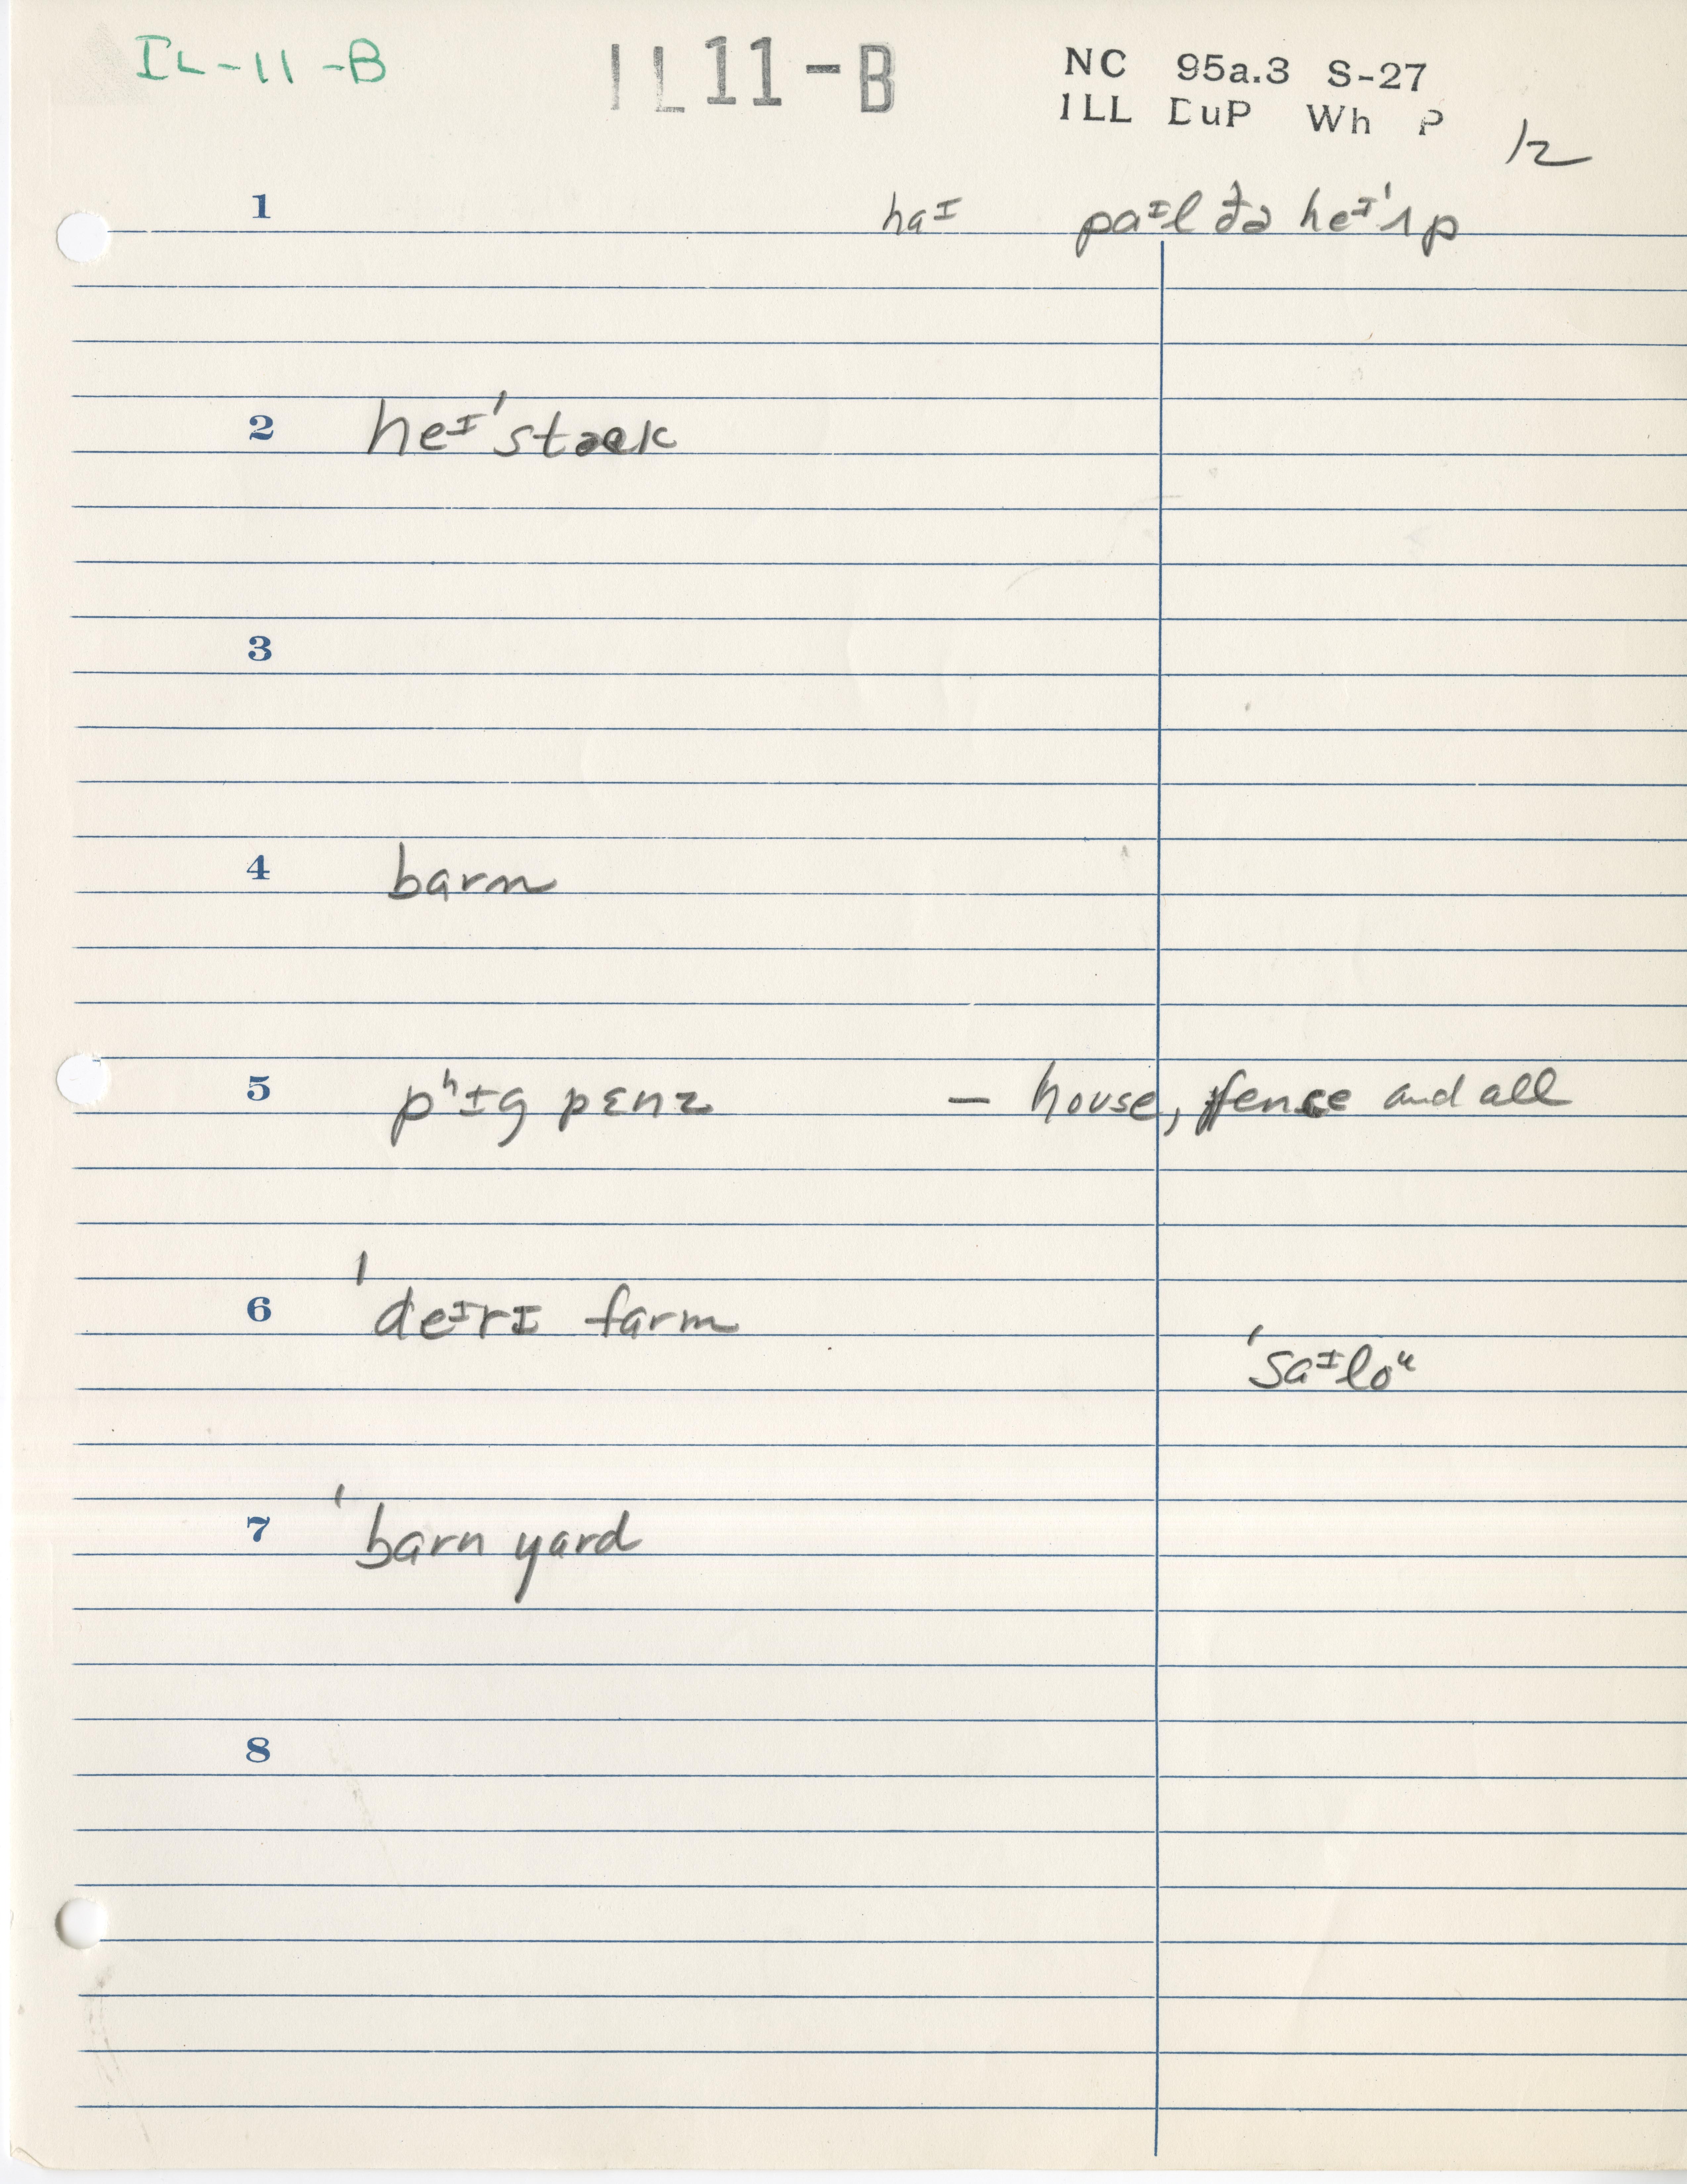 IL-11-B IL11-B NC 95a.3 S-27
ILL DuP Wh P
12
1 haᴵ paᴵl ðə heᴵ'ʌp
2 heᴵ'stæk
3
4 barn
5 pʰɪg pɛnz – house, fence and all
6 'deᴵrɪ farm
'saᴵloᵘ
7 'barn yard
8